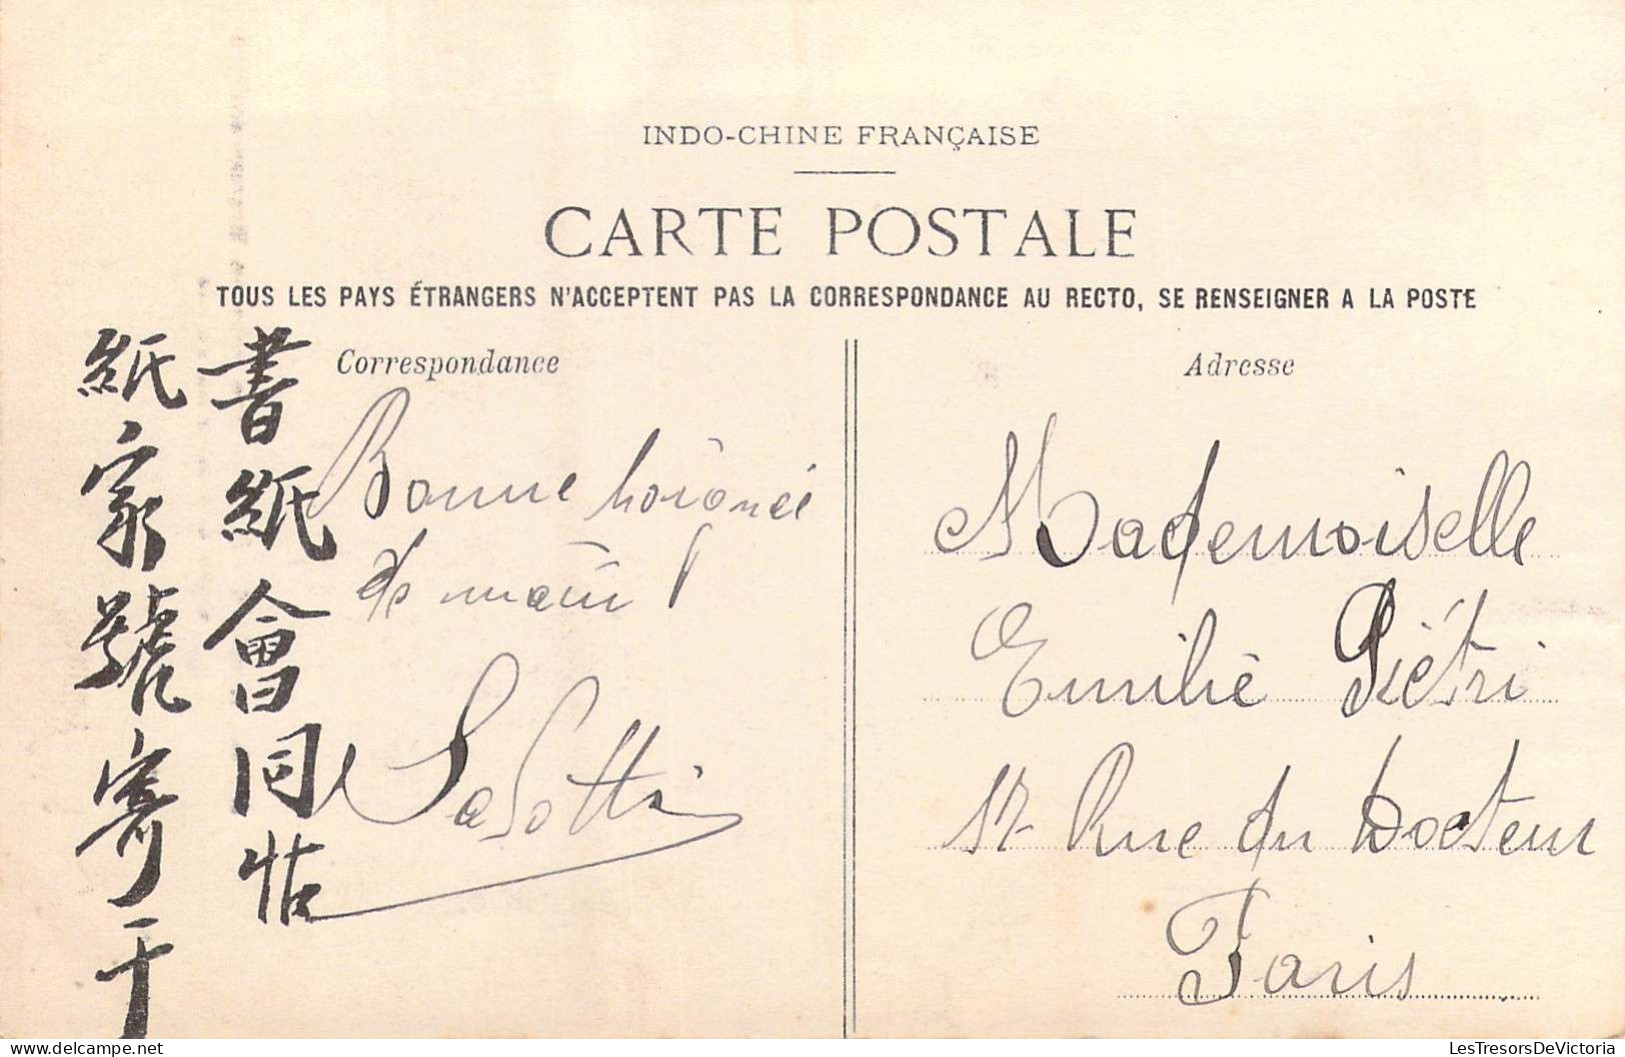 INDO-CHINE FRANÇAISE
CARTE POSTALE
TOUS LES PAYS ÉTRANGERS N'ACCEPTENT PAS LA CORRESPONDANCE AU RECTO, SE RENSEIGNER A LA POSTE
Correspondance
Adresse
書紙會同怙
紙家號寄于
Bonne
de
Mademoiselle
Emilie Piétri
17 Rue du Docteur
Paris
LesTresorsDeVictoria